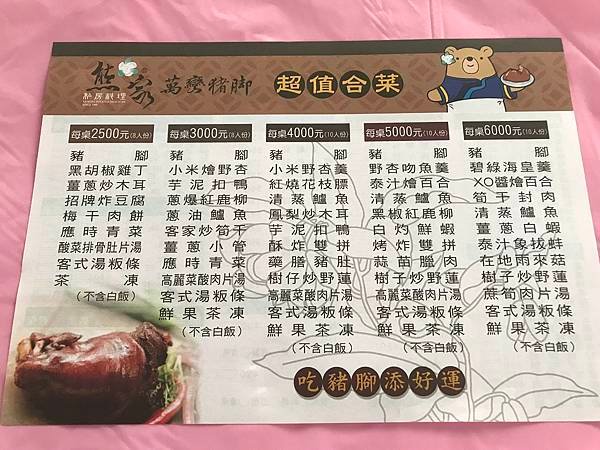 熊家 萬巒豬腳 超值合菜
私房料理
每桌2500元(8人份)
豬腳
黑胡椒雞丁
薑蔥炒木耳
招牌炸豆腐
梅干肉餅
應時青菜
酸菜排骨肚片湯
客式湯粄條
茶凍
(不含白飯)
每桌3000元(8人份)
豬腳
小米燴野杏
芋泥扣鴨
蔥爆紅鹿柳
蔥油鱸魚
客家炒筍干
薑蔥小管
應時青菜
高麗菜酸肉片湯
客式湯粄條
鮮果茶凍
(不含白飯)
每桌4000元(10人份)
豬腳
小米野杏羹
紅燒花枝膘
清蒸鱸魚
鳳梨炒木耳
芋泥扣鴨
酥炸雙拼
藥膳豬肚
樹仔炒野蓮
高麗菜酸肉片湯
客式湯粄條
鮮果茶凍
(不含白飯)
每桌5000元(10人份)
豬腳
野杏吻魚羹
泰汁燴百合
清蒸鱸魚
黑椒紅鹿柳
白灼鮮蝦
烤炸雙拼
蒜苗臘肉
樹子炒野蓮
高麗菜酸肉片湯
客式湯粄條
鮮果茶凍
(不含白飯)
每桌6000元(10人份)
豬腳
碧綠海皇羹
XO醬燴百合
筍干封肉
清蒸鱸魚
薑蔥白蝦
泰汁象拔蚌
在地雨來菇
樹子炒野蓮
蔗筍肉片湯
客式湯粄條
鮮果茶凍
(不含白飯)
吃豬腳添好運